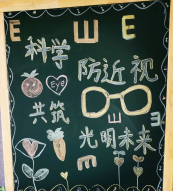 E E E
科学
防近视
eye
共筑
E
光明未来
E